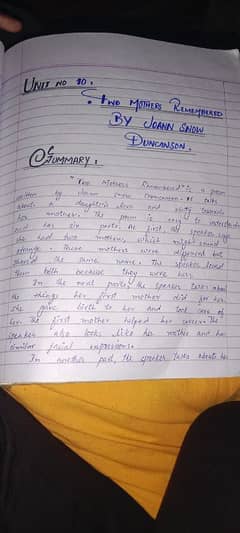 UNIT NO 10.
TWO MOTHERS REMEMBERED
BY JOANN SNOW
DUNCANSON.
SUMMARY.
"Two Mothers Remembered" is a poem
written by Joann Snow Duncanson. It talks
about a daughter's love and towards
her mother. The poem is easy to understand
and has six parts. At first, the speaker says
she had two mothers, which might sound
strange. These mothers were different but
shared the same name. The speaker loved
them both because they were hers.
In the next parts, the speaker talks about
the things her first mother did for her.
She gave birth to her and took care of
her. The first mother helped her
speaker also looks like her mother and has
similar facial expressions.
In another part, the speaker talks about her